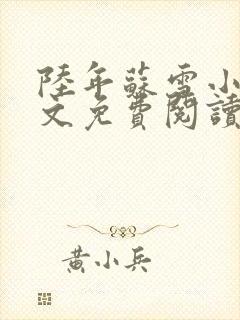 陸年蘇雪小
文免費閱讀
黃小兵